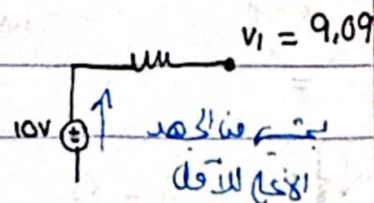 V₁ = 9,09
10V ±
يمشي من الجهد
الأعلى للأقل